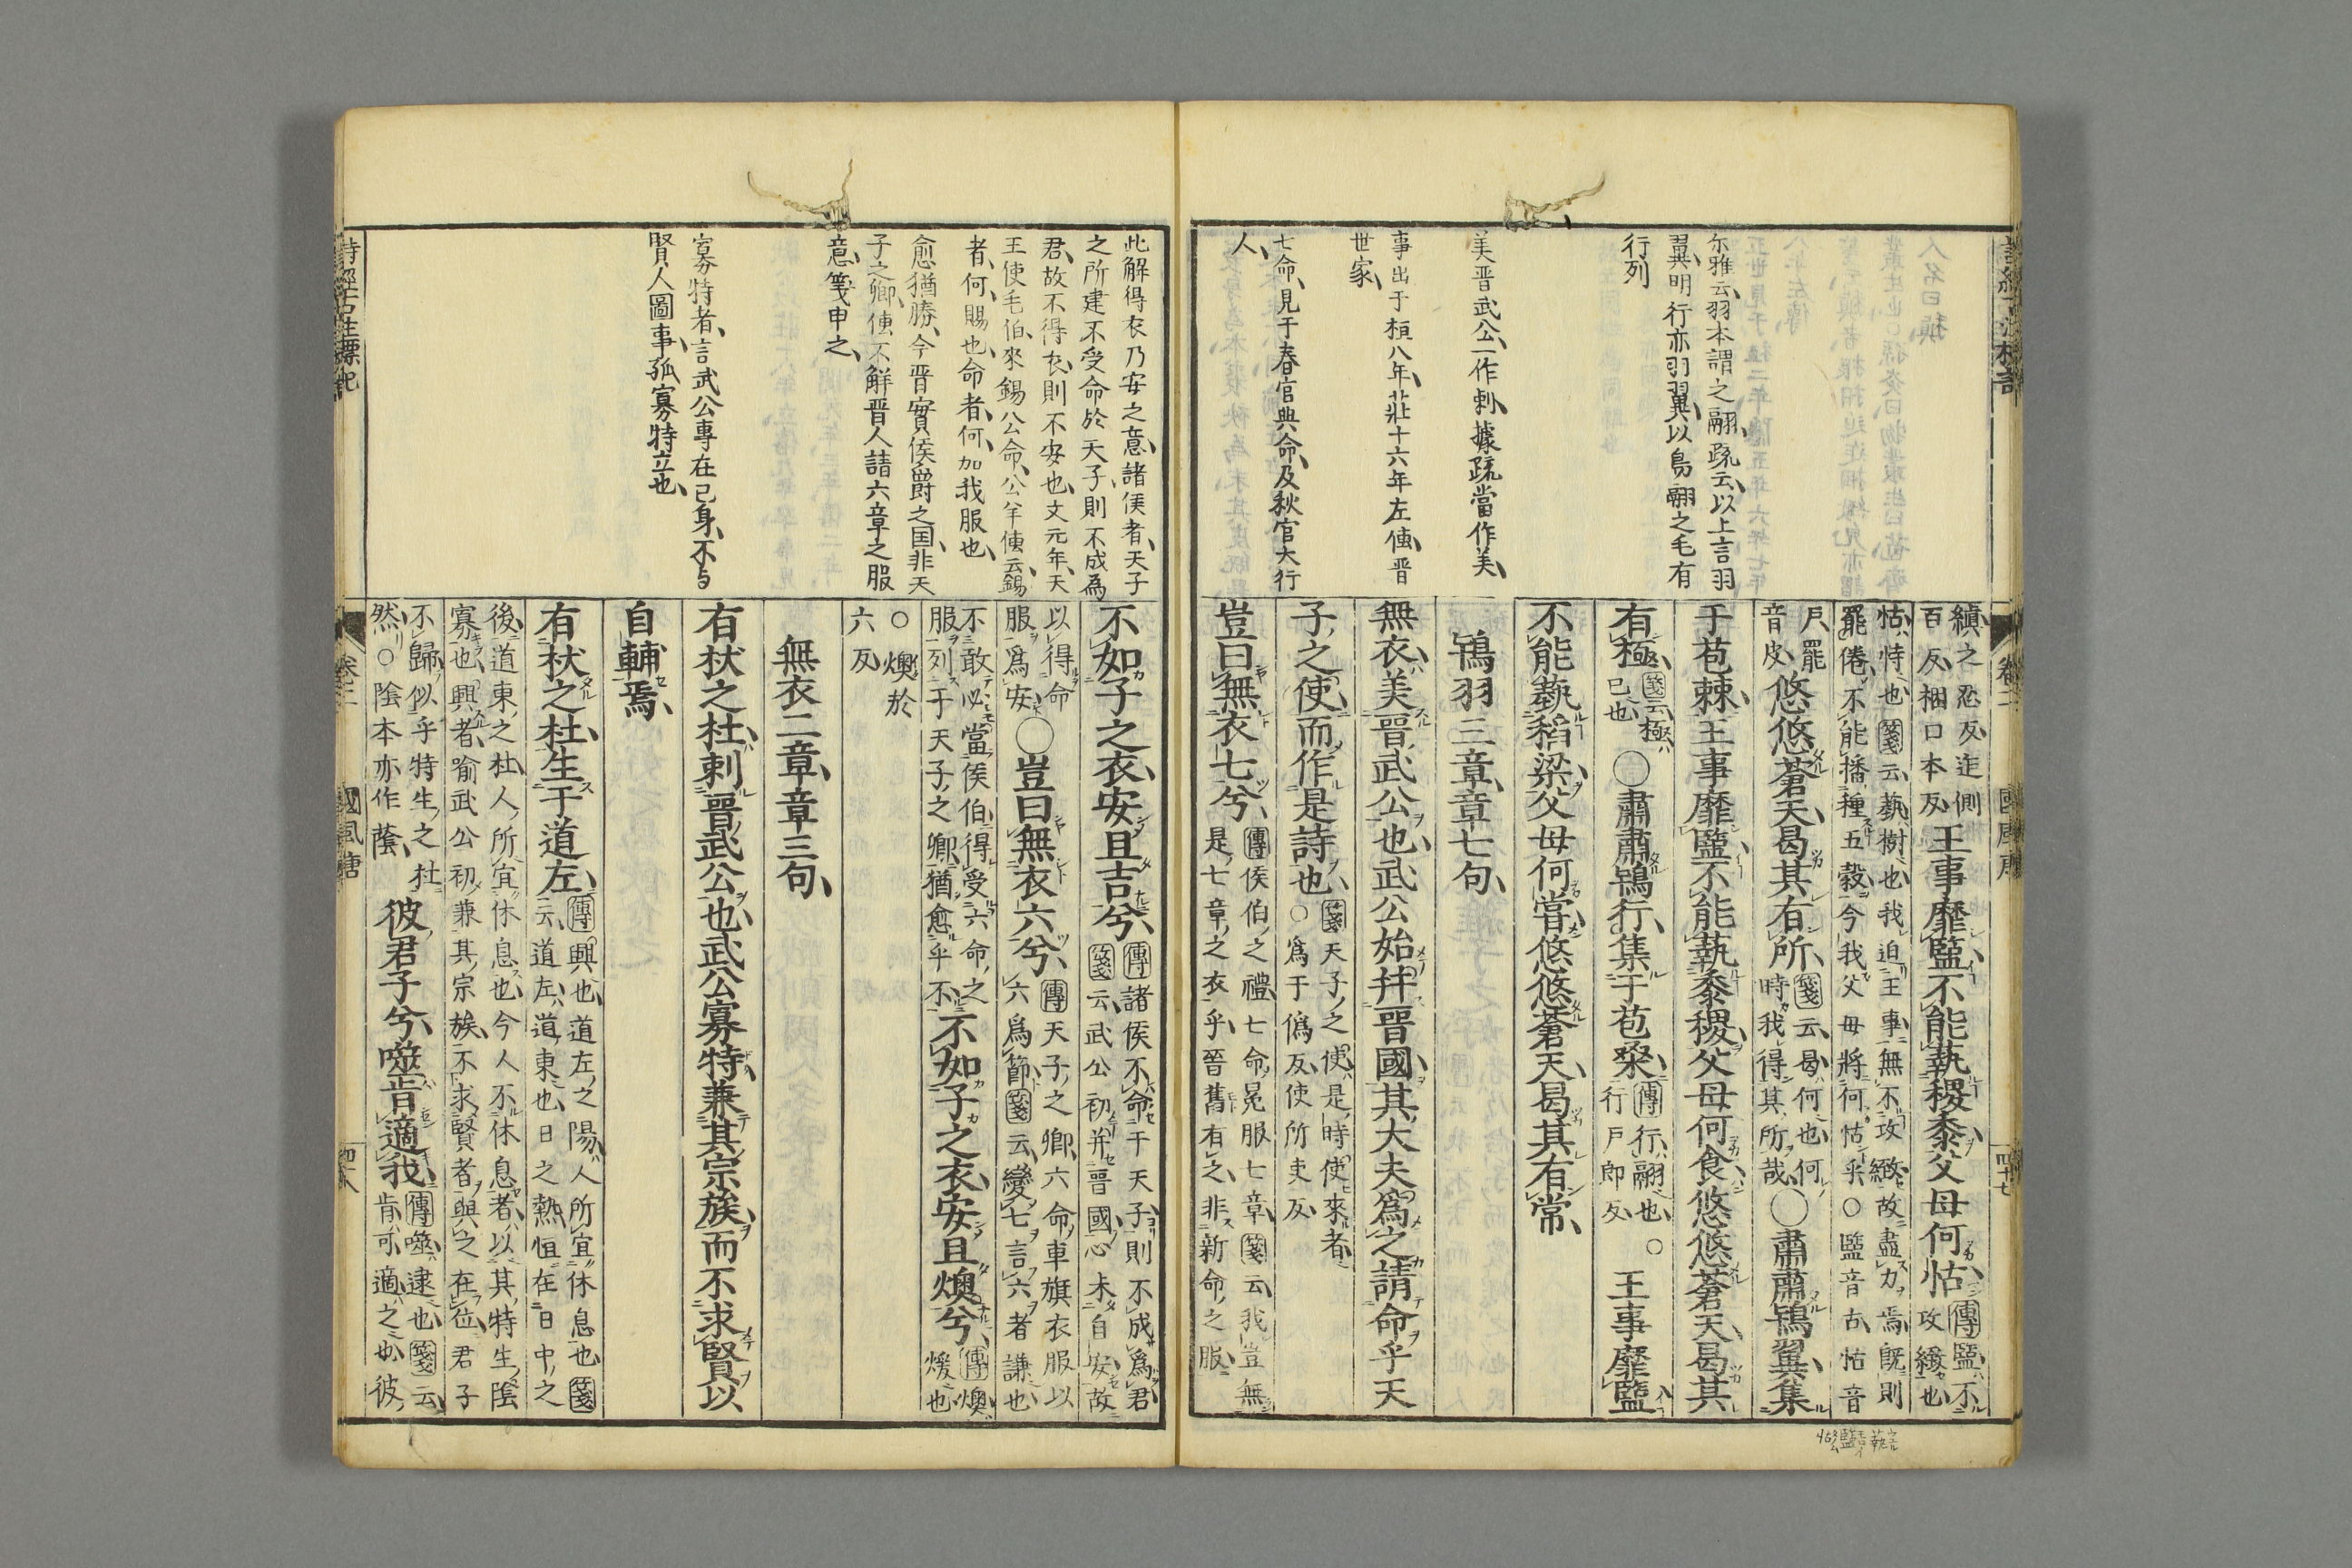 尓雅云羽本謂之翮疏云以上言羽
翼明行亦羽翼以鳥翮之毛有
行列
美晋武公一作刺據疏當作美
事出于桓八年莊十六年左傳晋
世家
七命見于春官典命及秋官大行
人
縝之忍反迮側
百反捆口本反
王事靡盬不能蓺稷黍父母何怙
傳盬不
攻緻也
怙恃也箋云蓺樹也我迫王事無不攻緻故盡力焉既則
罷倦不能播種五穀今我父母將何怙乎○盬音古怙音
戶罷
音皮
悠悠蒼天曷其有所
箋云曷何也何
時我得其所哉
○肅肅鴇翼集
于苞棘王事靡盬不能蓺黍稷父母何食悠悠蒼天曷其
有極
箋云極
已也
○肅肅鴇行集于苞桑
傳行翮也○
行戶郎反
王事靡盬
不能蓺稻梁父母何嘗悠悠蒼天曷其有常
鴇羽三章章七句
無衣美晋武公也武公始幷晋國其大夫爲之請命乎天
子之使而作是詩也
箋天子之使是時使來者
○爲于僞反使所吏反
豈曰無衣七兮
傳侯伯之禮七命冕服七章箋云我豈無
是七章之衣乎晉舊有之非新命之服
此解得衣乃安之意諸侯者天子
之所建不受命於天子則不成爲
君故不得衣則不安也文元年天
王使毛伯來錫公命公羊傳云錫
者何賜也命者何加我服也
愈猶勝今晋實侯爵之国非天
子之卿傳不解晋人請六章之服
意箋申之
寡特者言武公專在己身不与
賢人圖事孤寡特立也
不如子之衣安且吉兮
傳諸侯不命于天子則不成爲君
箋云武公初幷晋國心未自安故
以得命
服爲安
○豈曰無衣六兮
傳天子之卿六命車旗衣服以
六爲節箋云變七言六者謙也
不敢必當侯伯得受六命之
服列于天子之卿猶愈乎不
不如子之衣安且燠兮
傳燠
煖也
○燠於
六反
無衣二章章三句
有杕之杜刺晋武公也武公寡特兼其宗族而不求賢以
自輔焉
有杕之杜生于道左
傳興也道左之陽人所宜休息也箋
云道左道東也日之熱恒在日中之
後道東之杜人所宜休息也今人不休息者以其特生陰
寡也興者喻武公初兼其宗族不求賢者與之在位君子
不歸似乎特生之杜
然○陰本亦作蔭
彼君子兮噬肯適我
傳噬逮也箋云
肯可適之也彼
詩經古註標記
卷二
國風唐